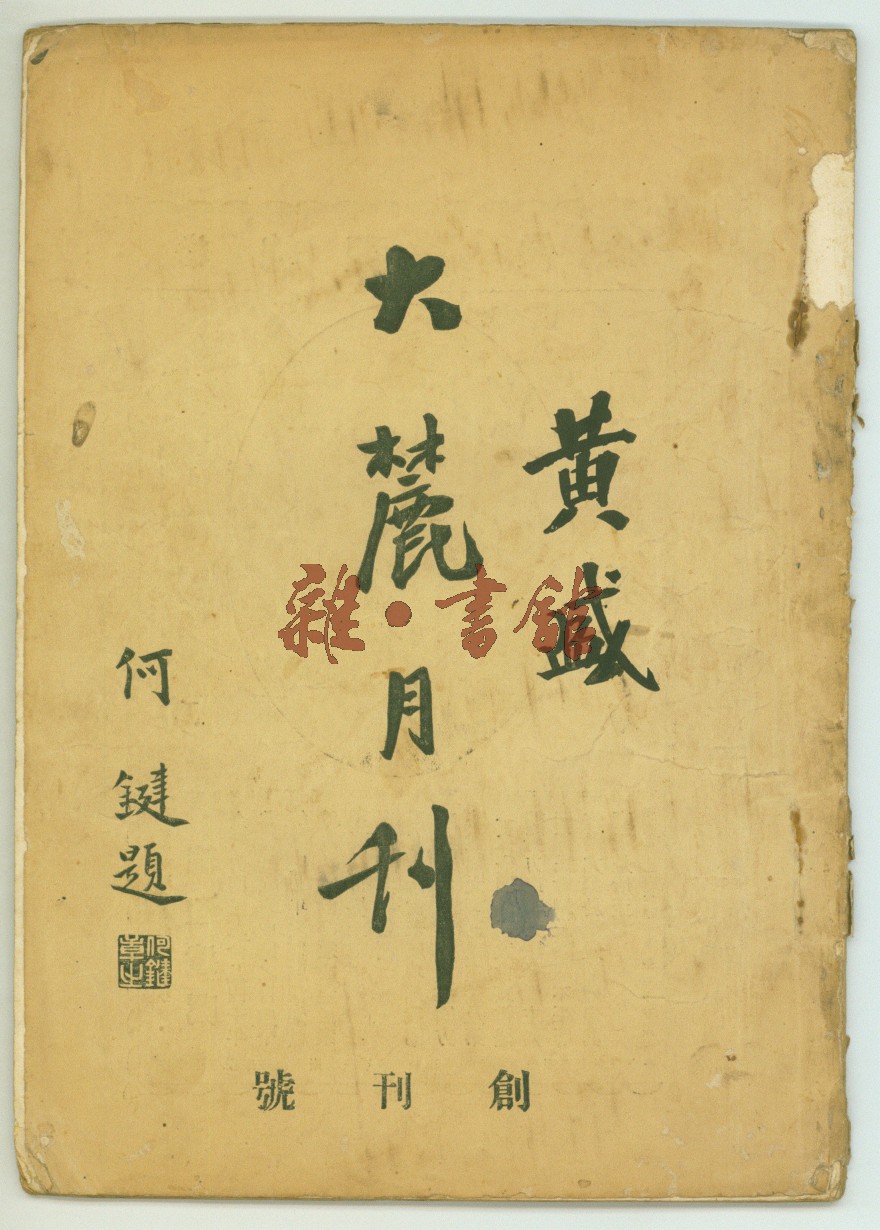 黃盛
大麓月刊
何鍵題
何鍵之章
創刊號
雜·書館